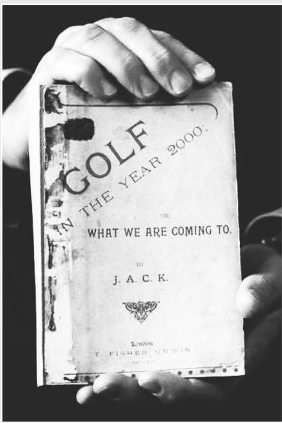 GOLF
IN THE YEAR 2000:
OR,
WHAT WE ARE COMING TO.
BY
J. A. C. K.
London
T. FISHER UNWIN